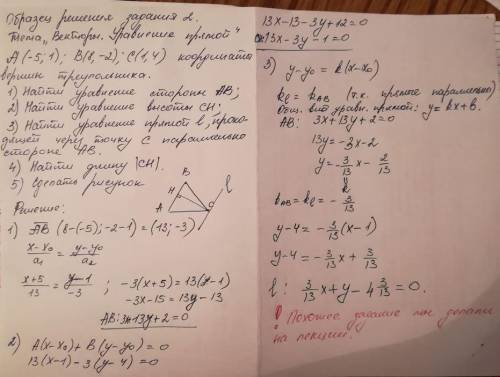 Образец решения задания 2.
Тема „Векторы. Уравнение прямой"
A(-5; 1); B(8; -2); C(1, 4) координаты
вершин треугольника.
1) Найти уравнение стороны AB;
2) Найти уравнение высоты CH;
3) Найти уравнение прямой l, прохо-
дящей через точку C параллельно
стороне AB.
4) Найти длину |CH|.
5) Сделать рисунок
B
H
A
C
l
Решение:
1) AB (8-(-5); -2-1) = (13; -3)
(x-x₀)/a₁ = (y-y₀)/a₂
(x+5)/13 = (y-1)/-3 ; -3(x+5) = 13(y-1)
-3x-15 = 13y-13
AB: 3x+13y+2=0
2) A(x-x₀) + B(y-y₀) = 0
13(x-1) - 3(y-4) = 0
13x-13-3y+12=0
13x-3y-1=0
3) y-y₀ = k(x-x₀)
k_l = k_AB (т.к. прямые параллельны)
Общ. вид уравн. прямой: y=kx+b.
AB: 3x+13y+2=0
13y = -3x-2
y = -3/13 x - 2/13
k
k_AB = k_l = -3/13
y-4 = -3/13 (x-1)
y-4 = -3/13 x + 3/13
l: 3/13 x + y - 4 3/13 = 0.
! Похожее задание мы делали
на лекции.